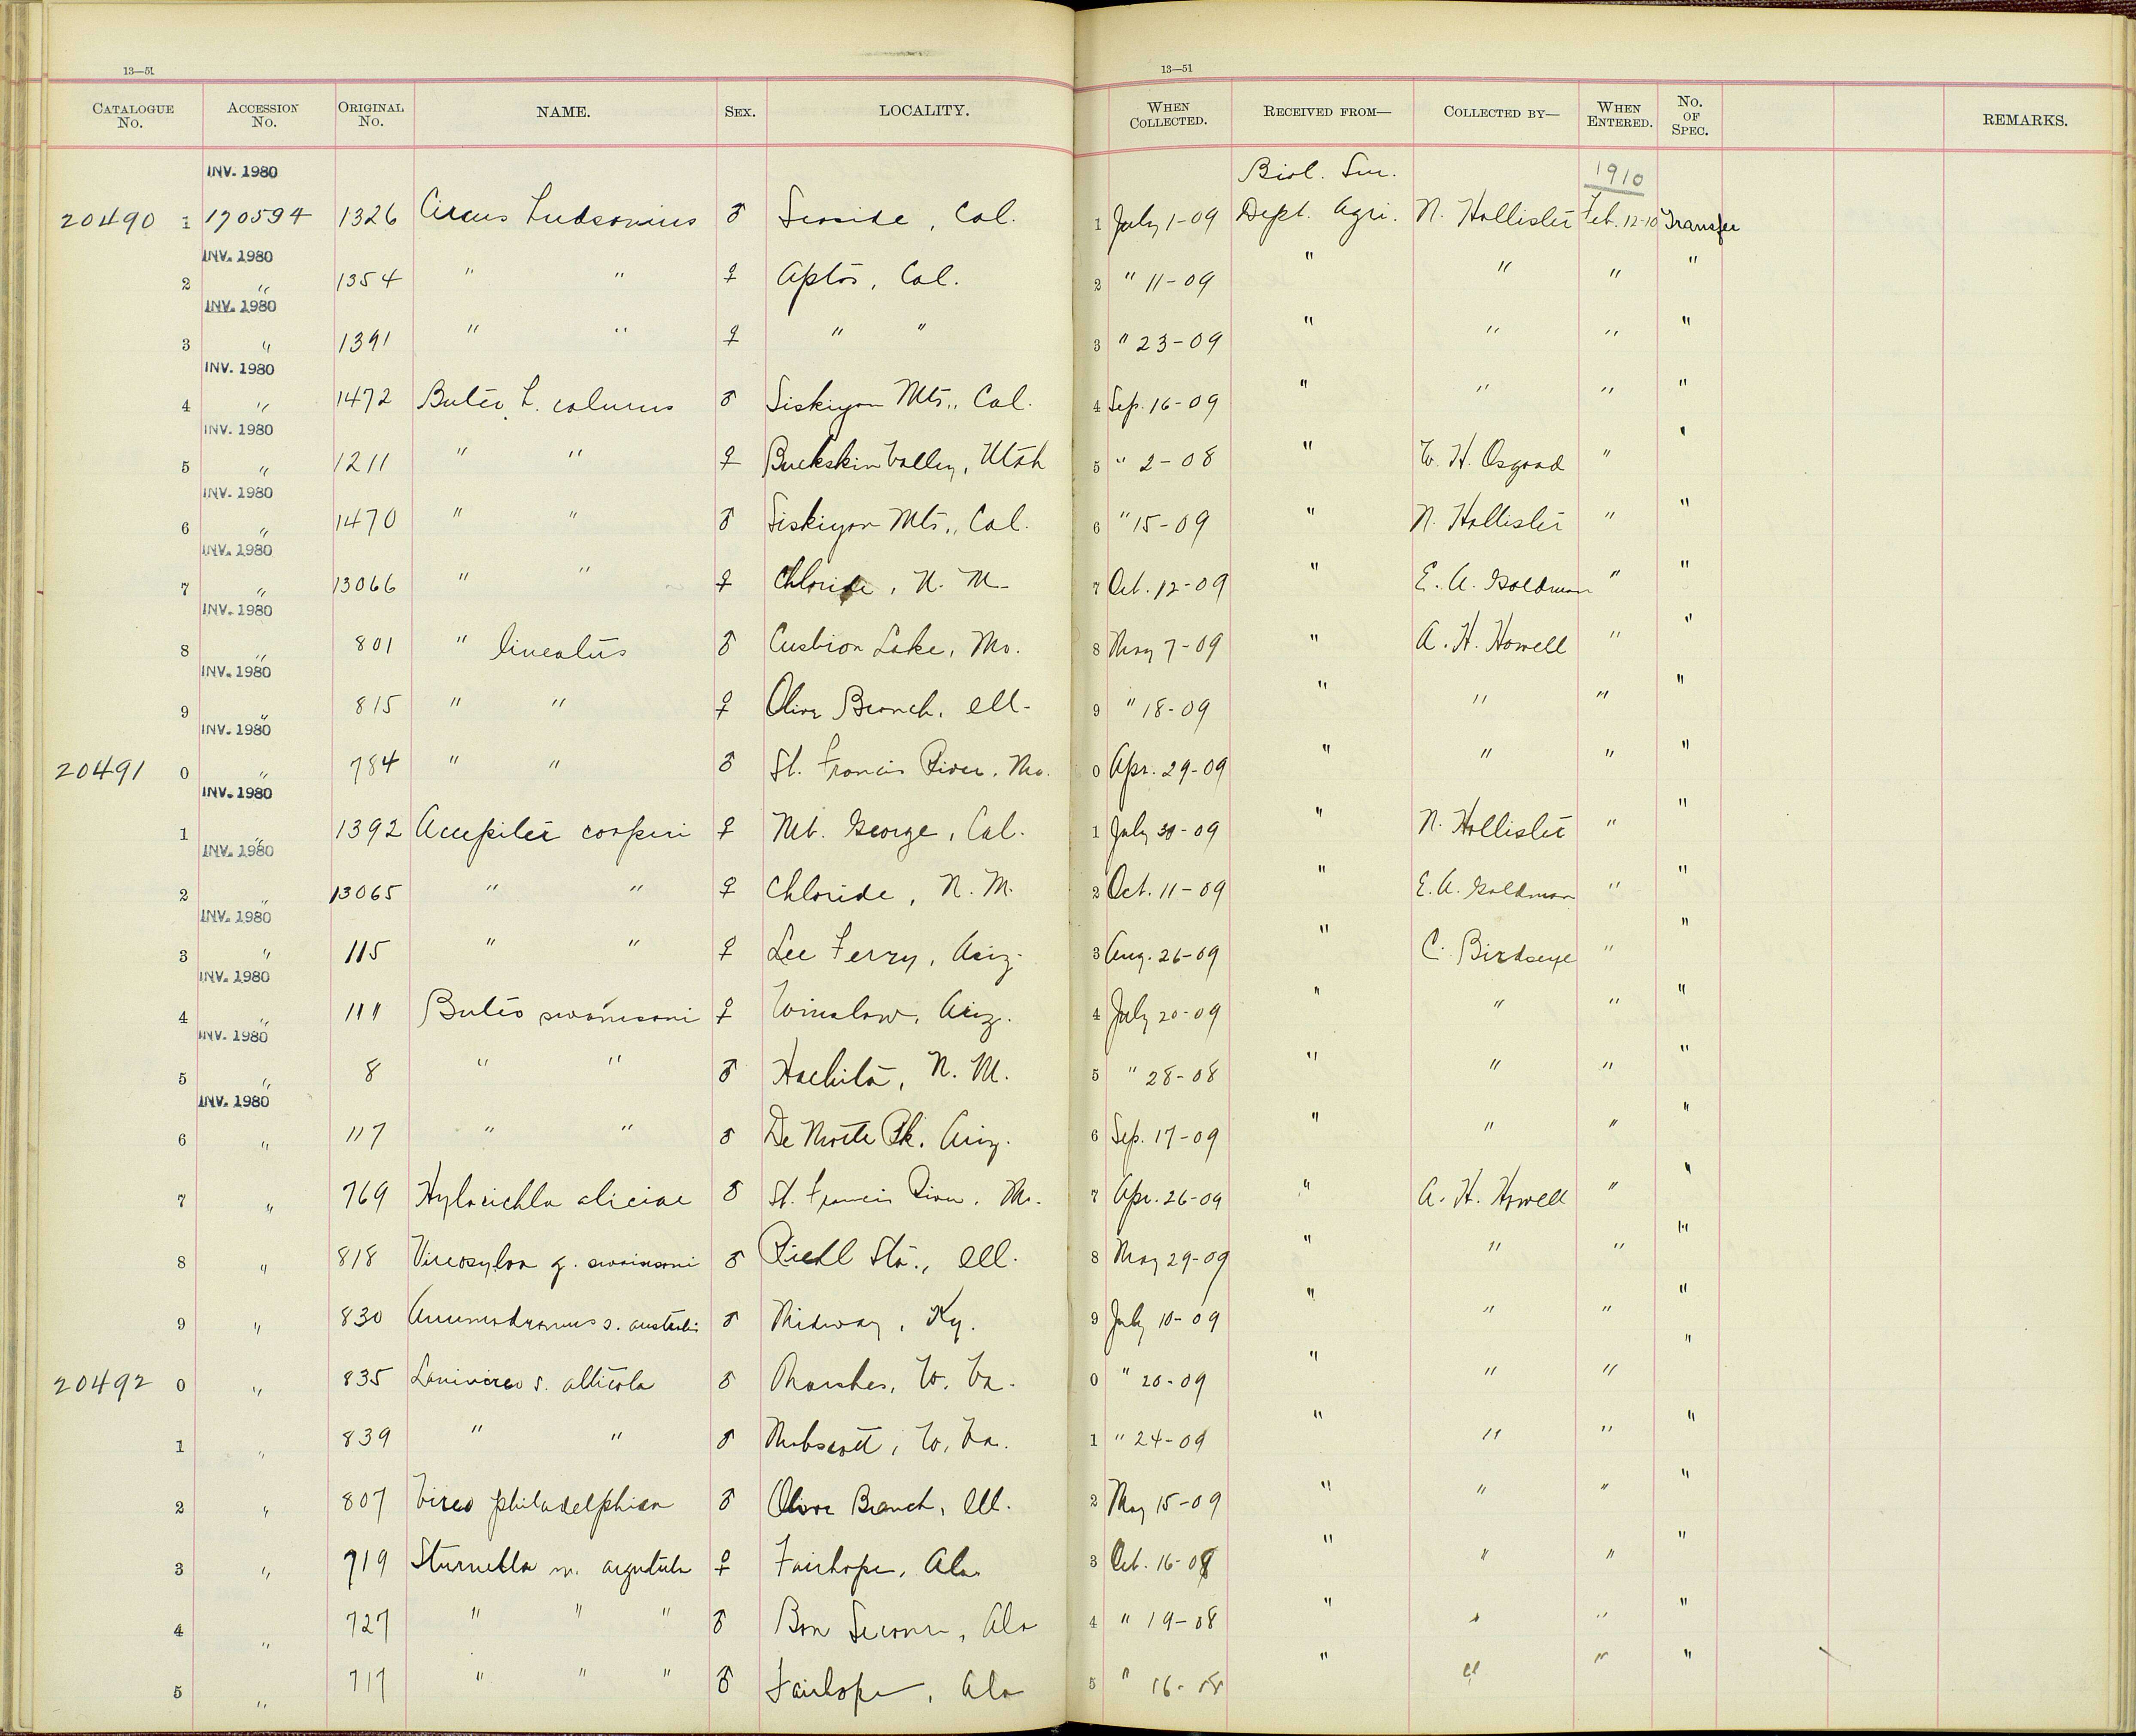 13—51 13—51
CATALOGUE No. ACCESSION No. ORIGINAL No. NAME. SEX. LOCALITY. WHEN COLLECTED. RECEIVED FROM— COLLECTED BY— WHEN ENTERED. No. OF SPEC. REMARKS.
INV. 1980 Biol. Sur. 1910
20490 1 170594 1326 Circus hudsonius ♂ Seaside, Cal. 1 July 1-09 Dept. Agri. N. Hollister Feb. 12-10 Transfer
INV. 1980
2 " 1354 " " ♀ Aptos, Cal. 2 " 11-09 " " " "
INV. 1980
3 " 1391 " " ♀ " " 3 " 23-09 " " " "
INV. 1980
4 " 1472 Buteo b. calurus ♂ Siskiyou Mts., Cal. 4 Sep. 16-09 " " " "
INV. 1980
5 " 1211 " " ♀ Buckskin Valley, Utah 5 " 2-08 " W. H. Osgood " "
INV. 1980
6 " 1470 " " ♂ Siskiyou Mts., Cal. 6 " 15-09 " N. Hollister " "
INV. 1980
7 " 13066 " " ♀ Chloride, N. M. 7 Oct. 12-09 " E. A. Goldman " "
INV. 1980
8 " 801 " lineatus ♂ Cushion Lake, Mo. 8 May 7-09 " A. H. Howell " "
INV. 1980
9 " 815 " " ♀ Olive Branch, Ill. 9 " 18-09 " " " "
INV. 1980
20491 0 " 784 " " ♂ St. Francis River, Mo. 0 Apr. 29-09 " " " "
INV. 1980
1 " 1392 Accipiter cooperi ♀ Mt. George, Cal. 1 July 30-09 " N. Hollister " "
INV. 1980
2 " 13065 " " ♀ Chloride, N. M. 2 Oct. 11-09 " E. A. Goldman " "
INV. 1980
3 " 115 " " ♀ Lee Ferry, Ariz. 3 Aug. 26-09 " C. Birdseye " "
INV. 1980
4 " 111 Buteo swainsoni ♀ Winslow, Ariz. 4 July 20-09 " " " "
INV. 1980
5 " 8 " " ♂ Hachita, N. M. 5 " 28-08 " " " "
INV. 1980
6 " 117 " " ♂ De Motte Pk. Ariz. 6 Sep. 17-09 " " " "
7 " 769 Hylocichla aliciae ♂ St. Francis River, Mo. 7 Apr. 26-09 " A. H. Howell " "
8 " 818 Vireosylva g. swainsoni ♂ Riehl Sta., Ill. 8 May 29-09 " " " "
9 " 830 Ammodramus s. australis ♂ Midway, Ky. 9 July 10-09 " " " "
20492 0 " 835 Lanivireo s. alticola ♂ Marshes, W. Va. 0 " 20-09 " " " "
1 " 839 " " ♂ Mabscott, W. Va. 1 " 24-09 " " " "
2 " 807 Vireo philadelphica ♂ Olive Branch, Ill. 2 May 15-09 " " " "
3 " 719 Sturnella m. argutula ♀ Fairhope, Ala. 3 Oct. 16-08 " " " "
4 " 727 " " " ♂ Bon Secour, Ala 4 " 19-08 " " " "
5 " 717 " " " ♂ Fairhope, Ala 5 " 16-08 " " " "